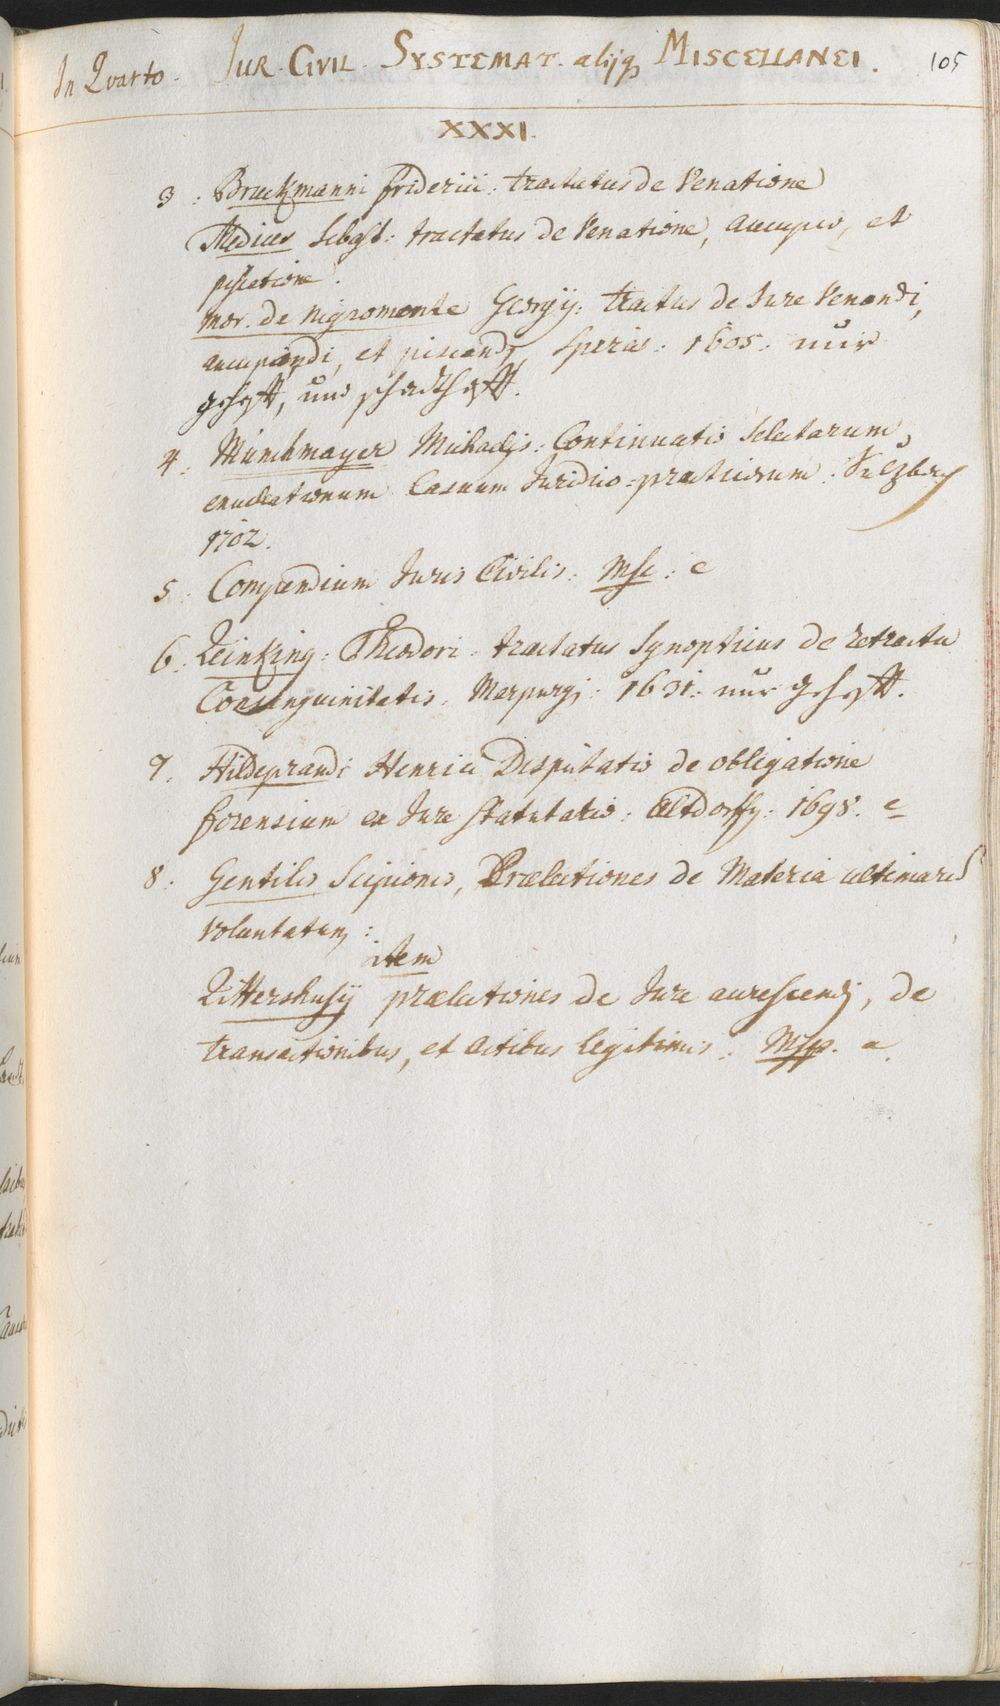 In Quarto. Jur. Civil. Systemat. alijq Miscellanei. 105
XXXI.
3. Bruckmanni Friderici: tractatus de Venatione
Medices Sebast: tractatus de Venatione, aucupio, et
piscatione.
Mor. de Nigromonte Georgij: tractus de Jure Venandi,
aucupandi, et piscandj, Spirae. 1605. nur
gehefft, und schadhafft.
4. Münchmayer Michaelis: Continuatio Selectarum,
enucleationum Casuum Juridico-practicorum. Sulzbach
1702.
5. Compendium Juris Civilis: Msc: c
6. Reinking: Theodori: tractatus Synopticus de retractu
Consanguinitatis. Marpurgj: 1631. nur gehefft.
7. Hildeprandi Henrici Disputatio de obligatione
forensium ex Jure statutario: Altdorffij: 1698. c
8. Gentilis Scipionis, Prælectiones de Materia ultimarum
voluntatum:
item
Rittershusij prælectiones de Jure accrescendj, de
transactionibus, et actibus legitimis. Msp. a.